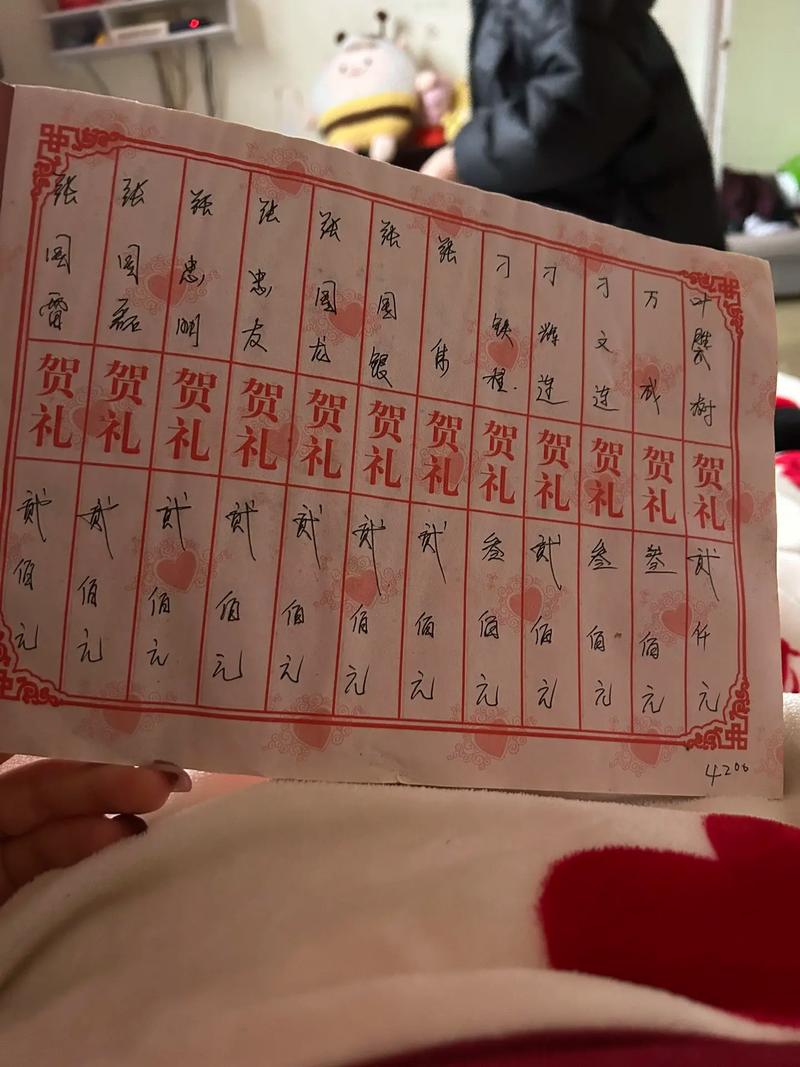 叶勝树 贺礼 贰仟元
万成 贺礼 叁佰元
刁文连 贺礼 叁佰元
刁辉连 贺礼 贰佰元
刁铁程 贺礼 叁佰元
张伟 贺礼 贰佰元
张国银 贺礼 贰佰元
张国龙 贺礼 贰佰元
张忠友 贺礼 贰佰元
张忠明 贺礼 贰佰元
张国磊 贺礼 贰佰元
张国雷 贺礼 贰佰元
4200